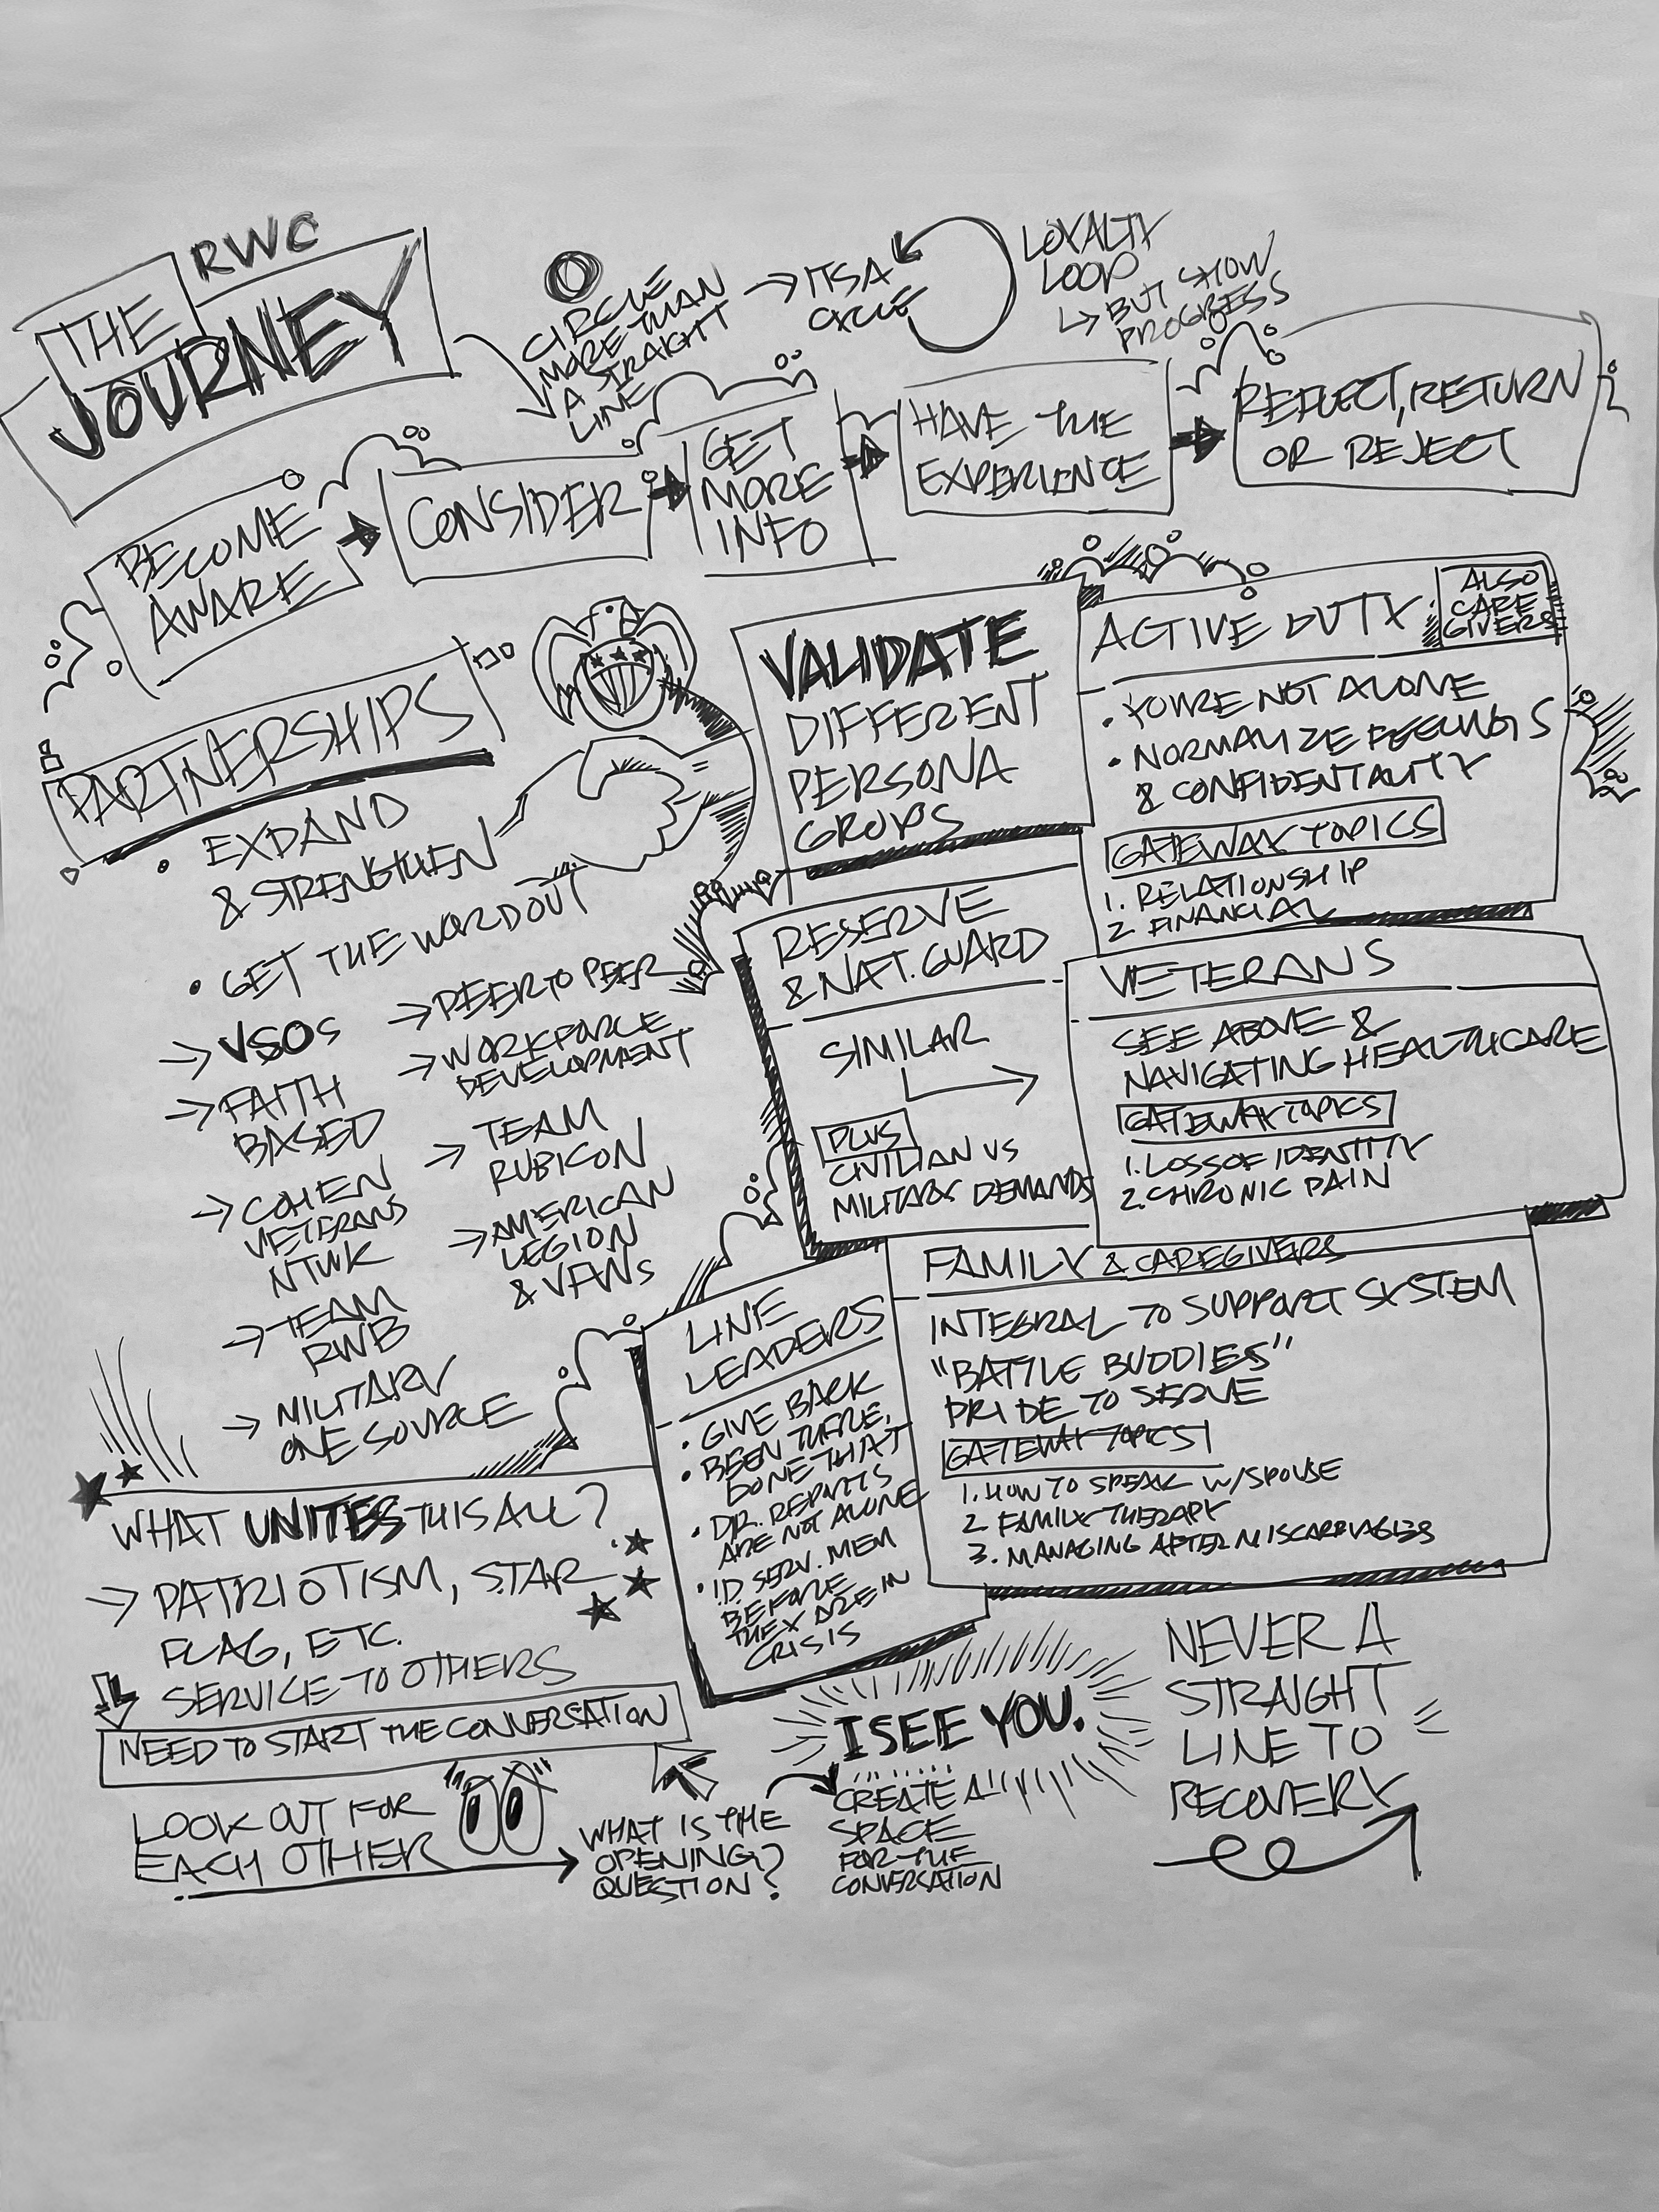 THE RWC
JOURNEY
CIRCLE
MORE THAN
A STRAIGHT
LINE
→ ITS A
CYCLE
LOYALTY
LOOP
↳ BUT SHOW
PROGRESS
BECOME
AWARE
CONSIDER
GET
MORE
INFO
HAVE THE
EXPERIENCE
REFLECT, RETURN
OR REJECT
PARTNERSHIPS
• EXPAND
& STRENGTHEN
• GET THE WORD OUT
→ VSOs
→ FAITH
BASED
→ COHEN
VETERANS
NTWK
→ TEAM
RWB
→ MILITARY
ONE SOURCE
→ PEER TO PEER
→ WORKFORCE
DEVELOPMENT
→ TEAM
RUBICON
→ AMERICAN
LEGION
& VFWs
VALIDATE
DIFFERENT
PERSONA
GROUPS
ACTIVE DUTY
ALSO
CARE
GIVERS
• YOU'RE NOT ALONE
• NORMALIZE FEELINGS
& CONFIDENTALITY
GATEWAY TOPICS
1. RELATIONSHIP
2. FINANCIAL
RESERVE
& NAT. GUARD
SIMILAR
PLUS
CIVILIAN VS
MILITARY DEMANDS
VETERANS
SEE ABOVE &
NAVIGATING HEALTHCARE
GATEWAY TOPICS
1. LOSS OF IDENTITY
2. CHRONIC PAIN
LINE
LEADERS
• GIVE BACK
• BEEN THERE,
DONE THAT
• DR. REPORTS
ARE NOT ALONE
• I.D. SERV. MEM
BEFORE
THEY ARE IN
CRISIS
FAMILY & CAREGIVERS
INTEGRAL TO SUPPORT SYSTEM
"BATTLE BUDDIES"
PRIDE TO SERVE
GATEWAY TOPICS
1. HOW TO SPEAK W/SPOUSE
2 FAMILY THERAPY
3. MANAGING AFTER MISCARRIAGES
WHAT UNITES THIS ALL?
→ PATRIOTISM, STAR
FLAG, ETC.
SERVICE TO OTHERS
NEED TO START THE CONVERSATION
LOOK OUT FOR
EACH OTHER
WHAT IS THE
OPENING
QUESTION?
I SEE YOU.
CREATE A
SPACE
FOR THE
CONVERSATION
NEVER A
STRAIGHT
LINE TO
RECOVERY